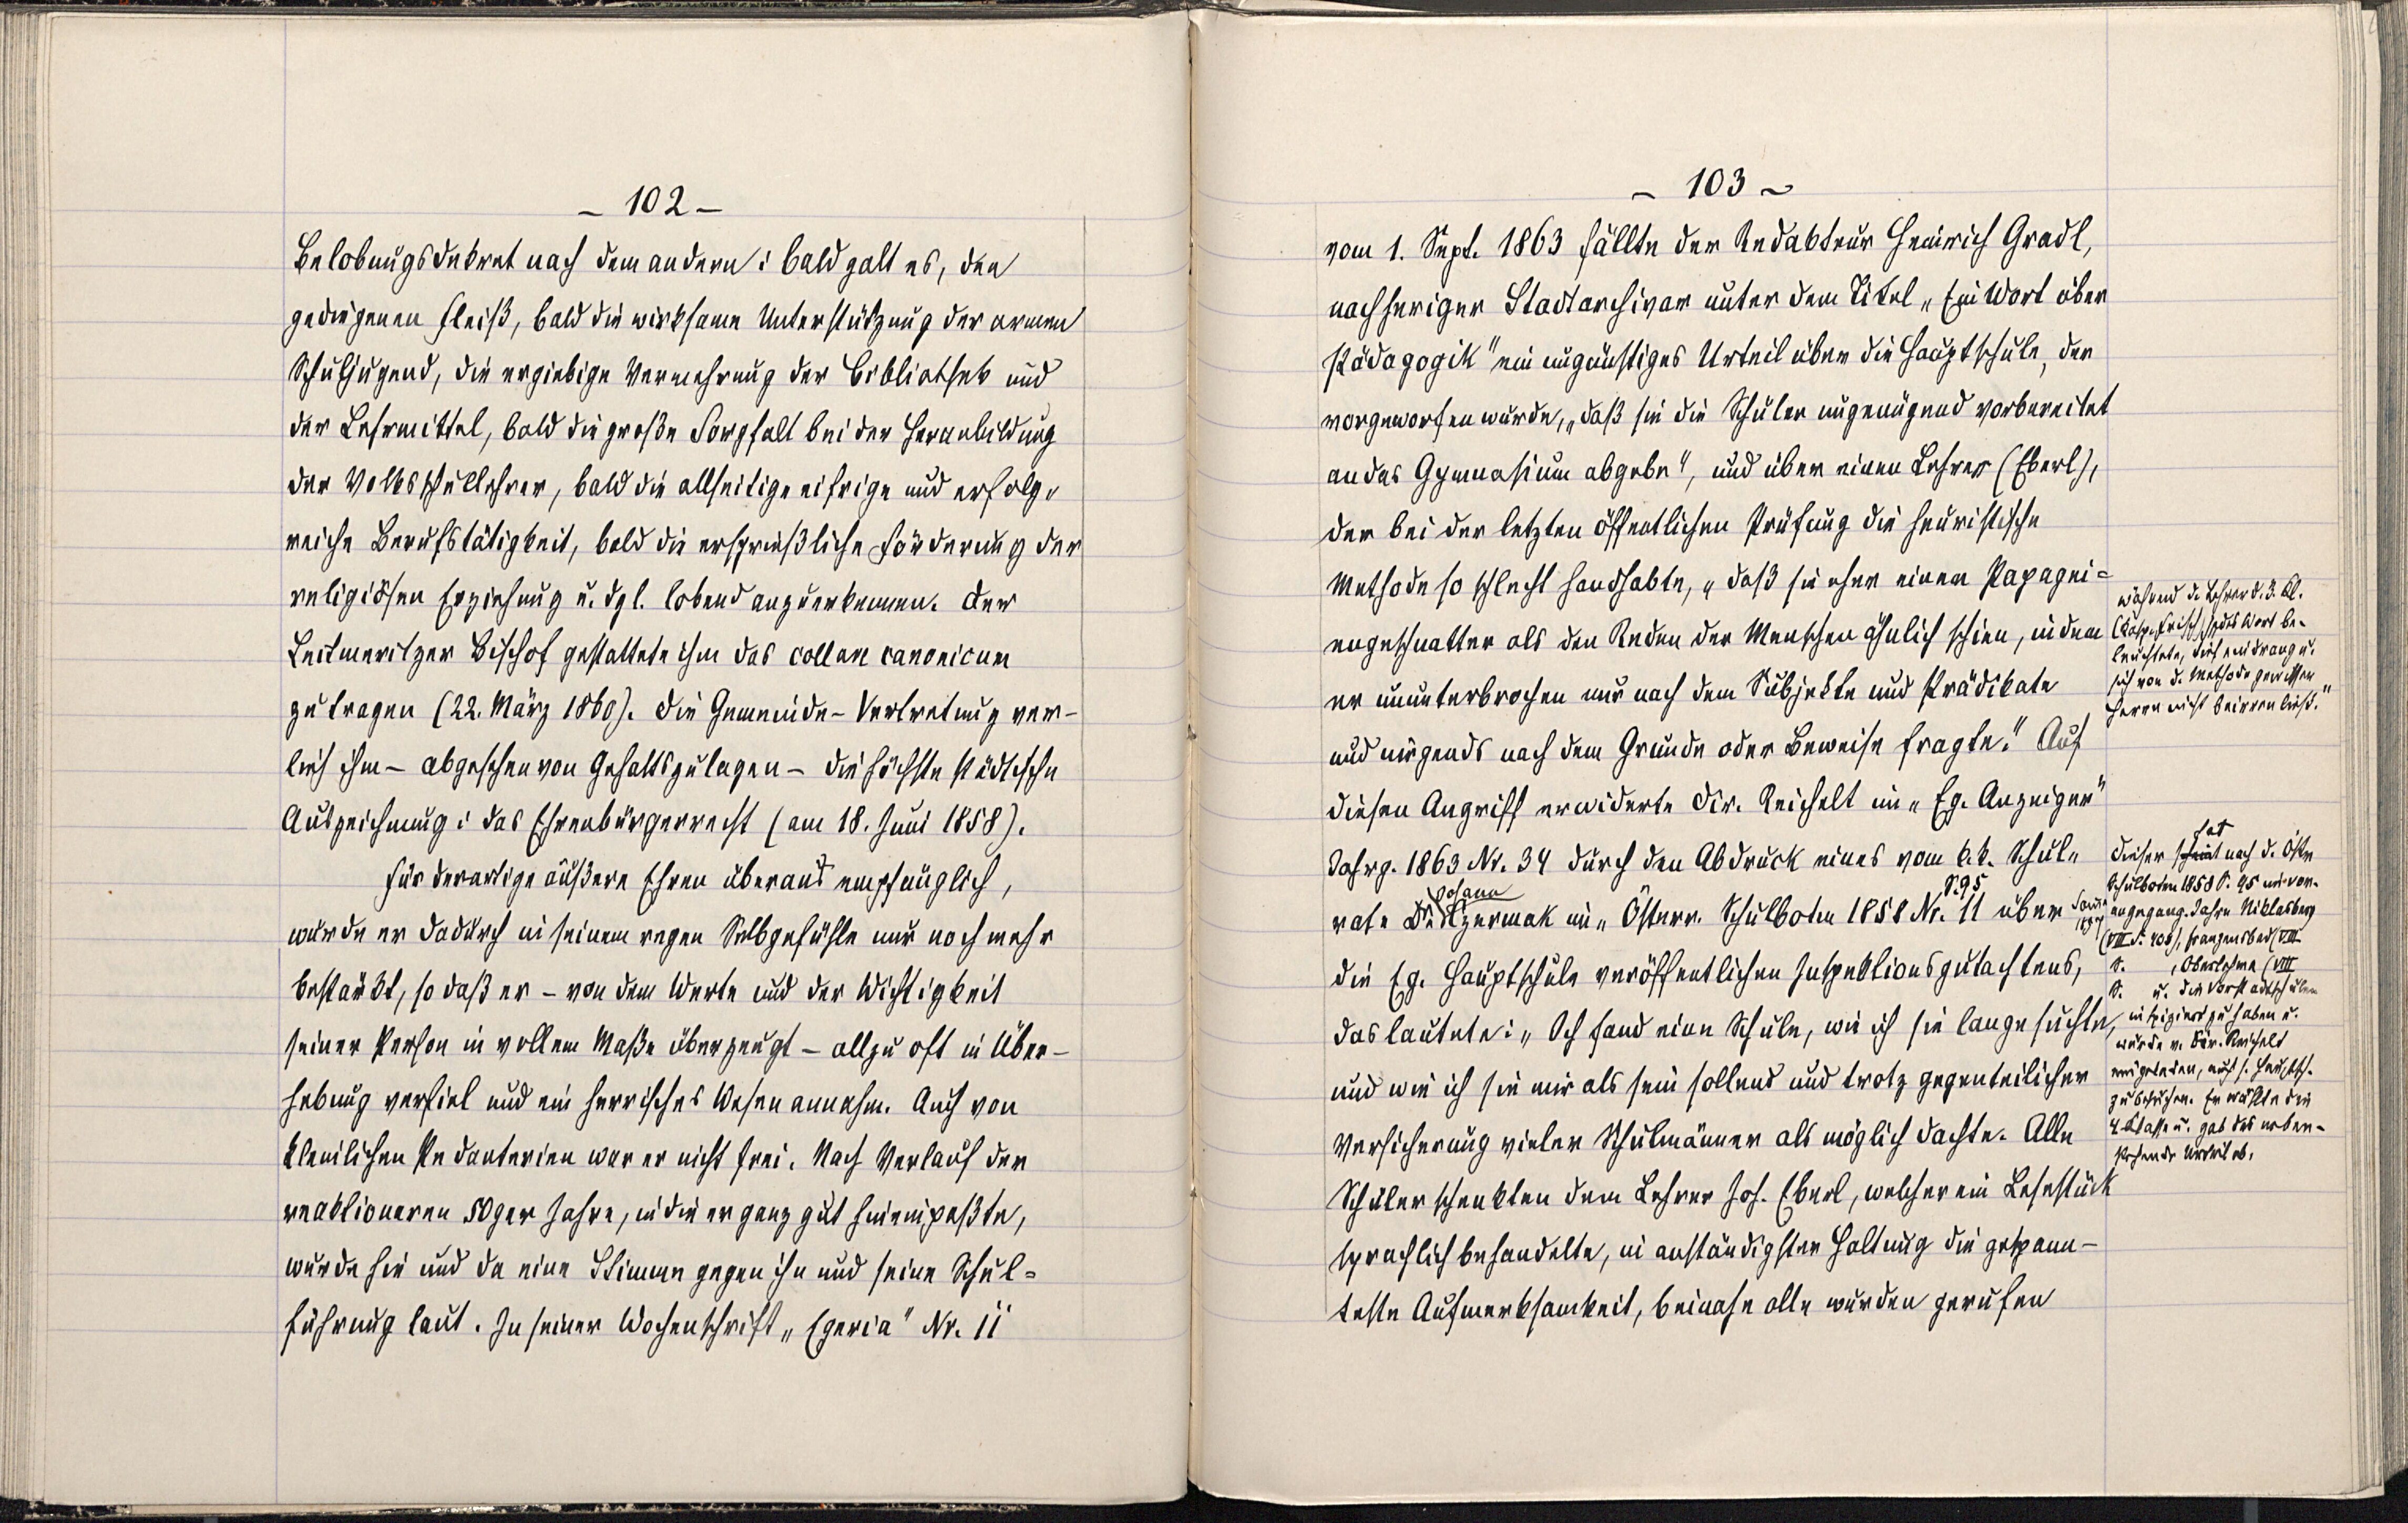 - 102 -
Belobungsdekret nach dem andern: bald galt es, den
gediegenen Fleiß, bald die wirksame Unterstützung der armen
Schuljugend, die ergiebige Vermehrung der Bibliothek und
der Lehrmittel, bald die große Sorgfalt bei der Heranbildung
der Volksschullehrer, bald die allseitige eifrige und erfolg-
reiche Berufstätigkeit, bald die ersprießliche Förderung der
religiösen Erziehung u. dgl. lobend anzuerkennen. Der
Leitmeritzer Bischof gestattete ihm das collare canonicum
zu tragen (22. März 1860). Die Gemeinde-Vertretung ver-
lieh ihm - abgesehen von Gehaltszulagen - die höchste städtische
Auszeichnung: das Ehrenbürgerrecht (am 18. Juni 1858).
Für derartige äußere Ehren überaus empfänglich,
wurde er dadurch in seinem regen Selbgefühle nur noch mehr
bestärkt, so daß er - von dem Werte und der Wichtigkeit
seiner Person in vollem Maße überzeugt - allzu oft in Über-
hebung verfiel und ein herrisches Wesen annahm. Auch von
kleinlichen Pedanterien war er nicht frei. Nach Verlauf der
reaktionären 50ger Jahre, in die er ganz gut hineinpaßte,
wurde hie und da eine Stimme gegen ihn und seine Schul-
führung laut. In seiner Wochenschrift „Egeria" Nr. 11
- 103 -
vom 1. Sept. 1863 fällte der Redakteur Heinrich Gradl,
nachheriger Stadtarchivar unter dem Titel „Ein Wort über
Pädagogik" ein ungünstiges Urteil über die Hauptschule, der
vorgeworfen wurde, „daß sie die Schüler ungenügend vorbereitet
an das Gymnasium abgebe", und über einen Lehrer (Eberl),
der bei der letzten öffentlichen Prüfung die heuristische
Methode so schlecht handhabte, „daß sie eher einem Papagei-
engeschnatter als den Reden der Menschen ähnlich schien, indem
er ununterbrochen nur nach dem Subjekte und Prädikate
und nirgends nach dem Grunde oder Beweise fragte." Auf
diesen Angriff erwiderte Dir. Reichelt im „Eg. Anzeiger"
Jahrg. 1863 Nr. 34 durch den Abdruck eines vom k.k. Schul-
rate Dr Johann Czermak im „Österr. Schulboten 1858 Nr. 11 S. 95 über
die Eg. Hauptschule veröffentlichen Inspektionsgutachtens,
das lautete: „Ich fand eine Schule, wie ich sie lange suchte,
und wie ich sie mir als sein sollend und trotz gegenteilicher
Versicherung vieler Schulmänner als möglich dachte. Alle
Schüler schenkten dem Lehrer Jos. Eberl, welcher ein Lesestück
sprachlich behandelte, in anständigster Haltung die gespann-
teste Aufmerksamkeit, beinahe alle wurden gerufen
während d. Lehrer d. 3. Kl.
jedes Wort be-
leuchtete, tief eindrang u.
sich von d. Methode gewisser
Herren nicht beirren ließ."
Dieser scheint hat nach d. Öster
Schulboten 1858 S. 95 im vor-
angegang. Jahre Niklasberg
(VIII S. 408), Franzensbad (VIII
S. , Oberlohma (VIII
S. u. die Vorstadtschulen
inspiziert zu haben u.
wurde v. Dir. Reichelt
eingeladen, auch s. Hauptsch.
zu besuchen. Er wählte die
4. Klasse u. gab das neben-
stehende Urteil ab.